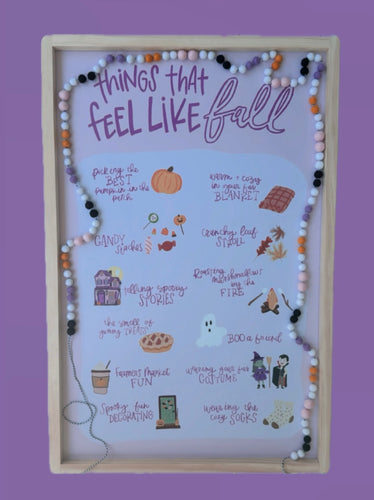 things that
FEEL LIKE fall
picking the
BEST
pumpkin in the
patch
warm + cozy
in your fav
BLANKET
CANDY
stashes
Crunchy leaf
STROLL
telling spooky
STORIES
Roasting
marshmallows
by the
FIRE
the smell of
yummy TREATS
BOO a friend
Farmers Market
FUN
wearing your fav
COSTUME
Spooky fun
DECORATING
Wearing the
cozy SOCKS